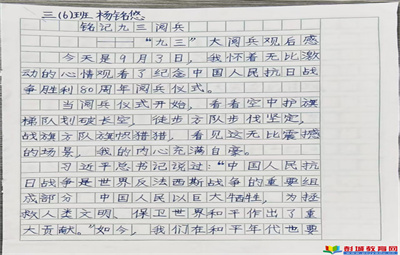 三(6)班 杨铭悠
铭记九三阅兵
——“九三”大阅兵观后感
今天是9月3日,我怀着无比激
动的心情观看了纪念中国人民抗日战
争胜利80周年阅兵仪式。
当阅兵仪式开始,看看空中护旗
梯队划破长空,徒步方队步伐坚定,
战旗方队旗帜猎猎,看见这无比震撼
的场景,我的内心充满自豪。
习近平总书记说过:“中国人民抗
日战争是世界反法西斯战争的重要组
成部分 中国人民以巨大牺牲,为拯
救人类文明、保卫世界和平作出了重
大贡献。”如今,我们在和平年代也要
彭城教育网